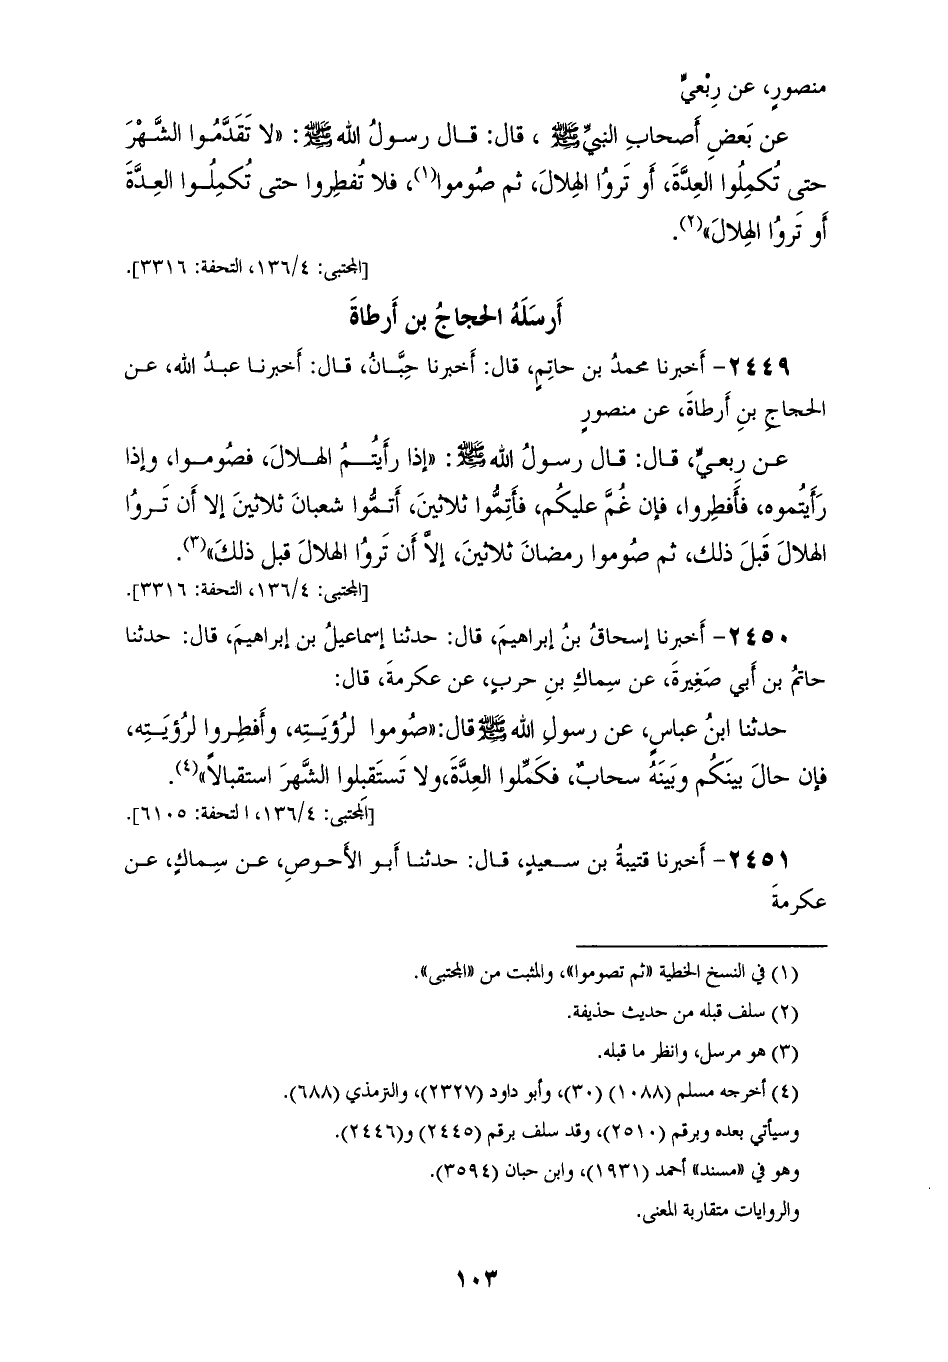 منصورٍ، عن رِبْعيٍّ
عن بَعضِ أَصحابِ النبيِّ ﷺ ، قال: قـال رسـولُ الله ﷺ: «لا تَقَدَّمُوا الشَّهْرَ
حتى تُكمِلُوا العِدَّةَ، أَو تَروُا الهِلالَ، ثم صُوموا(١)، فلا تُفطِروا حتى تُكمِلُـوا العِـدَّةَ
أَو تَروُا الهِلالَ»(٢).
[المجتبى: ١٣٦/٤، التحفة: ٣٣١٦].
أَرسَلَهُ الحجاجُ بن أَرطاةَ
٢٤٤٩- أَخبرنا محمدُ بن حاتِمٍ، قال: أَخبرنا حِبَّانُ، قـال: أَخبرنـا عبـدُ الله، عـن
الحجاجِ بنِ أَرطاةَ، عن منصورٍ
عـن ربعيٍّ، قـال: قـال رسـولُ الله ﷺ: «إذا رأَيتُـمُ الهـلالَ، فصُومـوا، وإذا
رَأَيتُموه، فأَفطِروا، فإن غُمَّ عليكُم، فأَتِمُّوا ثلاثينَ، أَتـمُّوا شعبانَ ثلاثينَ إلا أن تَـروُا
الهلالَ قَبلَ ذلك، ثم صُوموا رمضانَ ثلاثينَ، إلاَّ أَن تَروُا الهلالَ قبل ذلكَ»(٣).
[المجتبى: ١٣٦/٤، التحفة: ٣٣١٦].
٢٤٥٠- أَخبرنا إسحاقُ بنُ إبراهيمَ، قال: حدثنا إسماعيلُ بن إبراهيمَ، قال: حدثنا
حاتمُ بن أَبي صَغِيرةَ، عن سِماكِ بنِ حربٍ، عن عكرمةَ، قال:
حدثنا ابنُ عباسٍ، عن رسولِ الله ﷺ قال:«صُوموا لرُؤيَـتِه، وأَفطِـروا لرُؤيَـتِه،
فإن حالَ بينَكُم وبَينَهُ سحابٌ، فكَمِّلوا العِدَّةَ،ولا تَستَقبِلوا الشَّهرَ استقبالاً»(٤).
[المجتبى: ١٣٦/٤، التحفة: ٦١٠٥].
٢٤٥١- أَخبرنا قتيبةُ بن سـعيدٍ، قـال: حدثنـا أَبـو الأَحـوصِ، عـن سِـماكٍ، عـن
عكرمةَ
(١) في النسخ الخطية «ثم تصوموا»، والمثبت من «المجتبى».
(٢) سلف قبله من حديث حذيفة.
(٣) هو مرسل، وانظر ما قبله.
(٤) أخرجه مسلم (١٠٨٨) (٣٠)، وأبو داود (٢٣٢٧)، والترمذي (٦٨٨).
وسيأتي بعده وبرقم (٢٥١٠)، وقد سلف برقم (٢٤٤٥) و(٢٤٤٦).
وهو في «مسند» أحمد (١٩٣١)، وابن حبان (٣٥٩٤).
والروايات متقاربة المعنى.
١٠٣